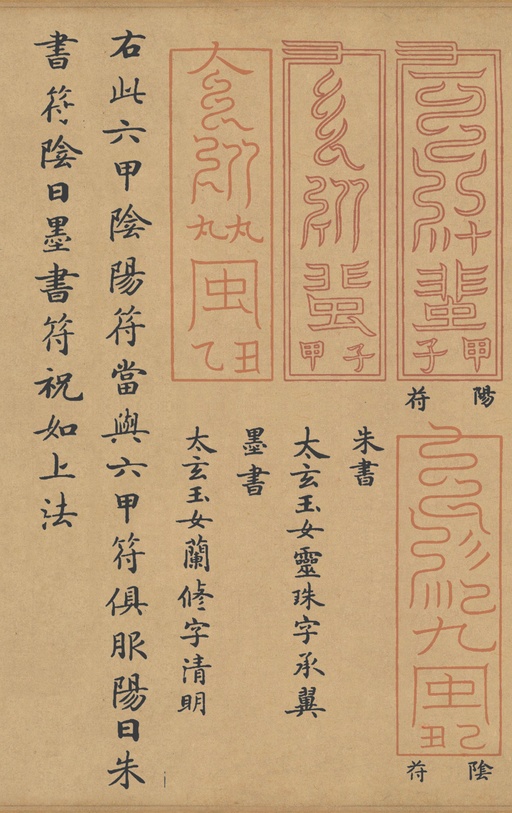 甲子
陽符
九
虫
丑
陰符
甲子
朱書
太玄玉女靈珠字承翼
墨書
丸丸
虫
乙丑
太玄玉女蘭修字清明
右此六甲陰陽符當與六甲符俱服陽日朱
書符陰日墨書符祝如上法